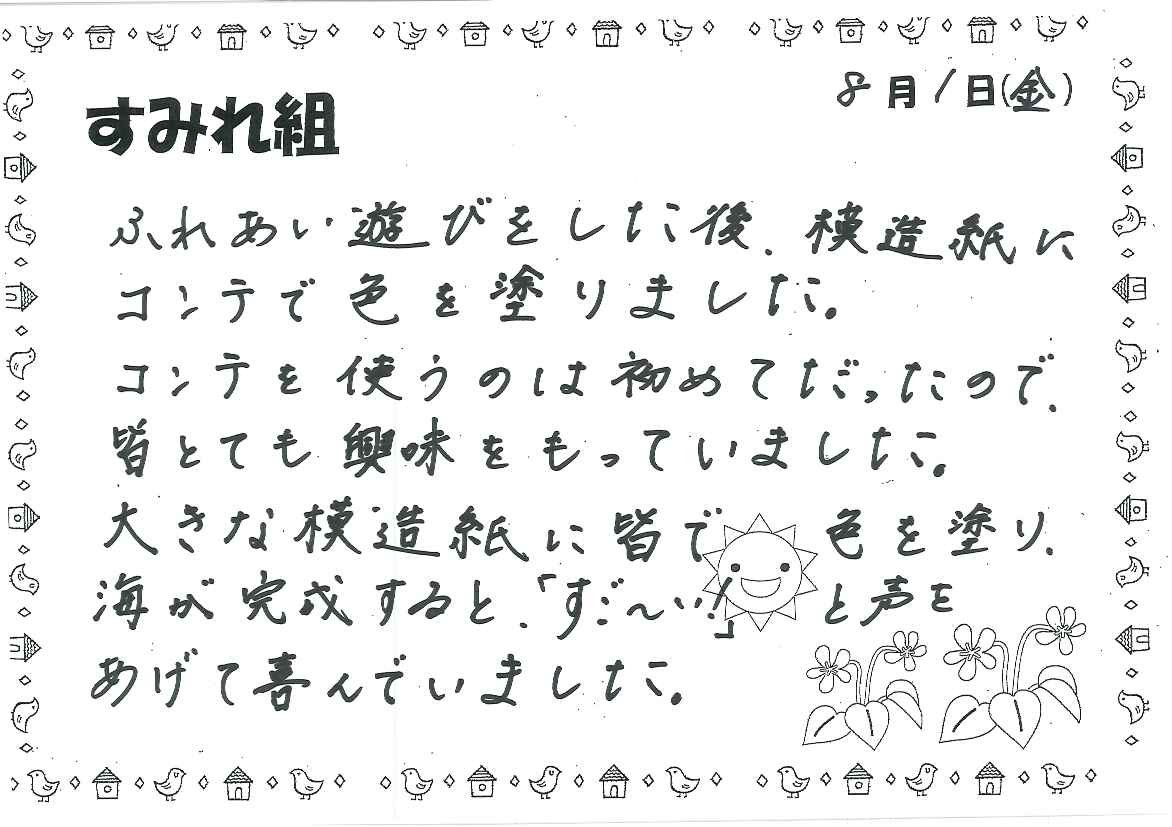 8月1日(金)
すみれ組
ふれあい遊びをした後、模造紙に
コンテで色を塗りました。
コンテを使うのは初めてだったので、
皆とても興味をもっていました。
大きな模造紙に皆で 色を塗り、
海が完成すると、「すご〜い!」と声を
あげて喜んでいました。